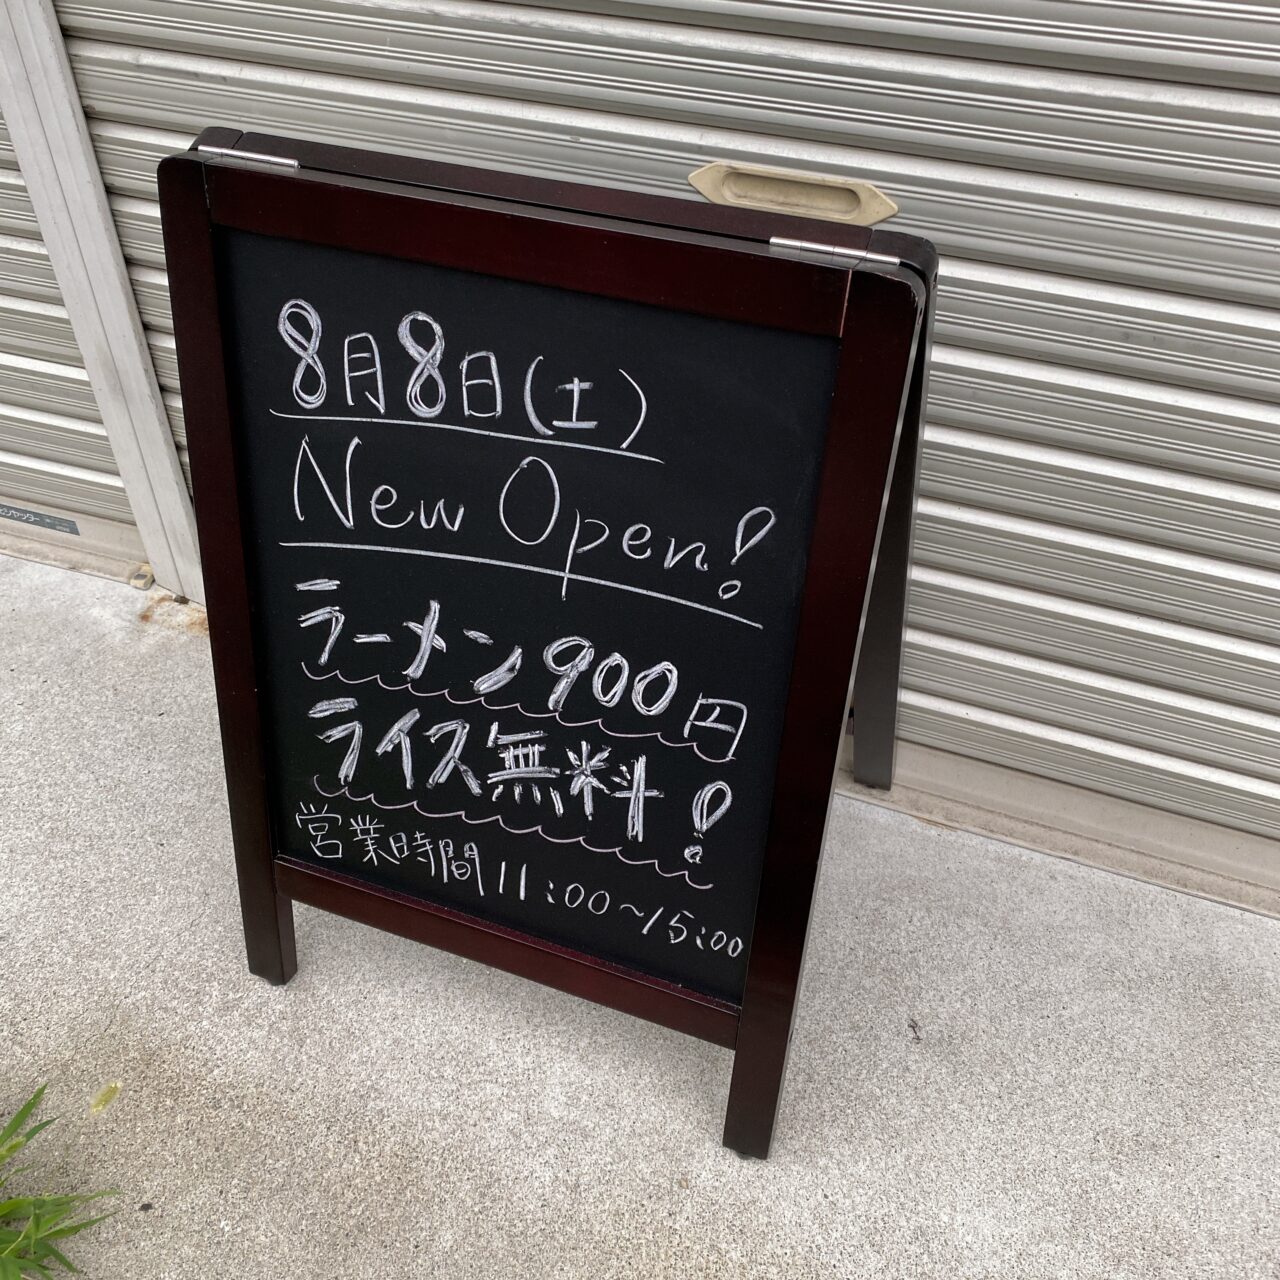 8月8日(土)
New Open!
ラーメン900円
ライス無料!
営業時間11:00～15:00